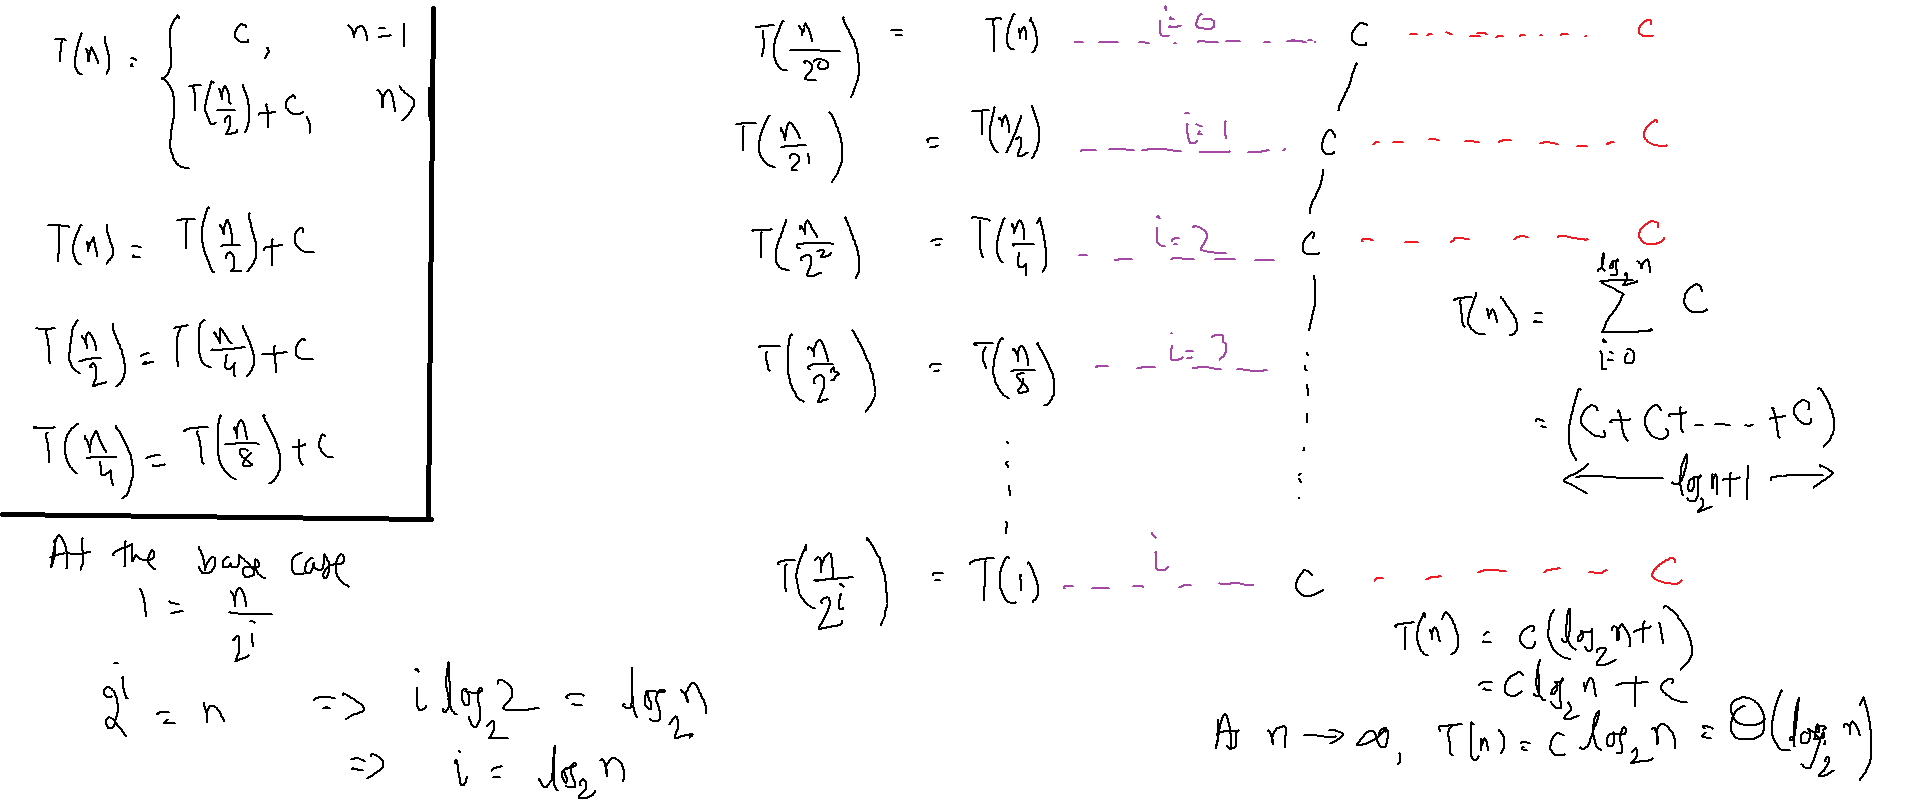 T(n) = { c, n=1
T(n/2)+c, n>
T(n) = T(n/2)+c
T(n/2) = T(n/4)+c
T(n/4) = T(n/8)+c
At the base case
1 = n/2^i
2^i = n => i log₂2 = log₂n
=> i = log₂n
T(n/2⁰) = T(n) i=0 c c
T(n/2¹) = T(n/2) i=1 c c
T(n/2²) = T(n/4) i=2 c c
T(n/2³) = T(n/8) i=3
T(n/2^i) = T(1) i c c
T(n) = Σ_{i=0}^{log₂n} c
= (c+c+----+c)
log₂n+1
T(n) = c(log₂n+1)
= c log₂n + c
As n→∞, T(n) = c log₂n = Θ(log₂n)